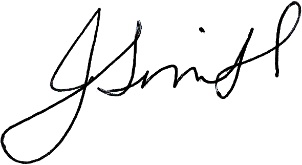 J Smith